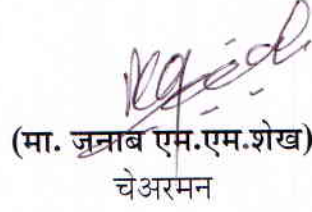 (मा. जनाब एम.एम.शेख)
चेअरमन